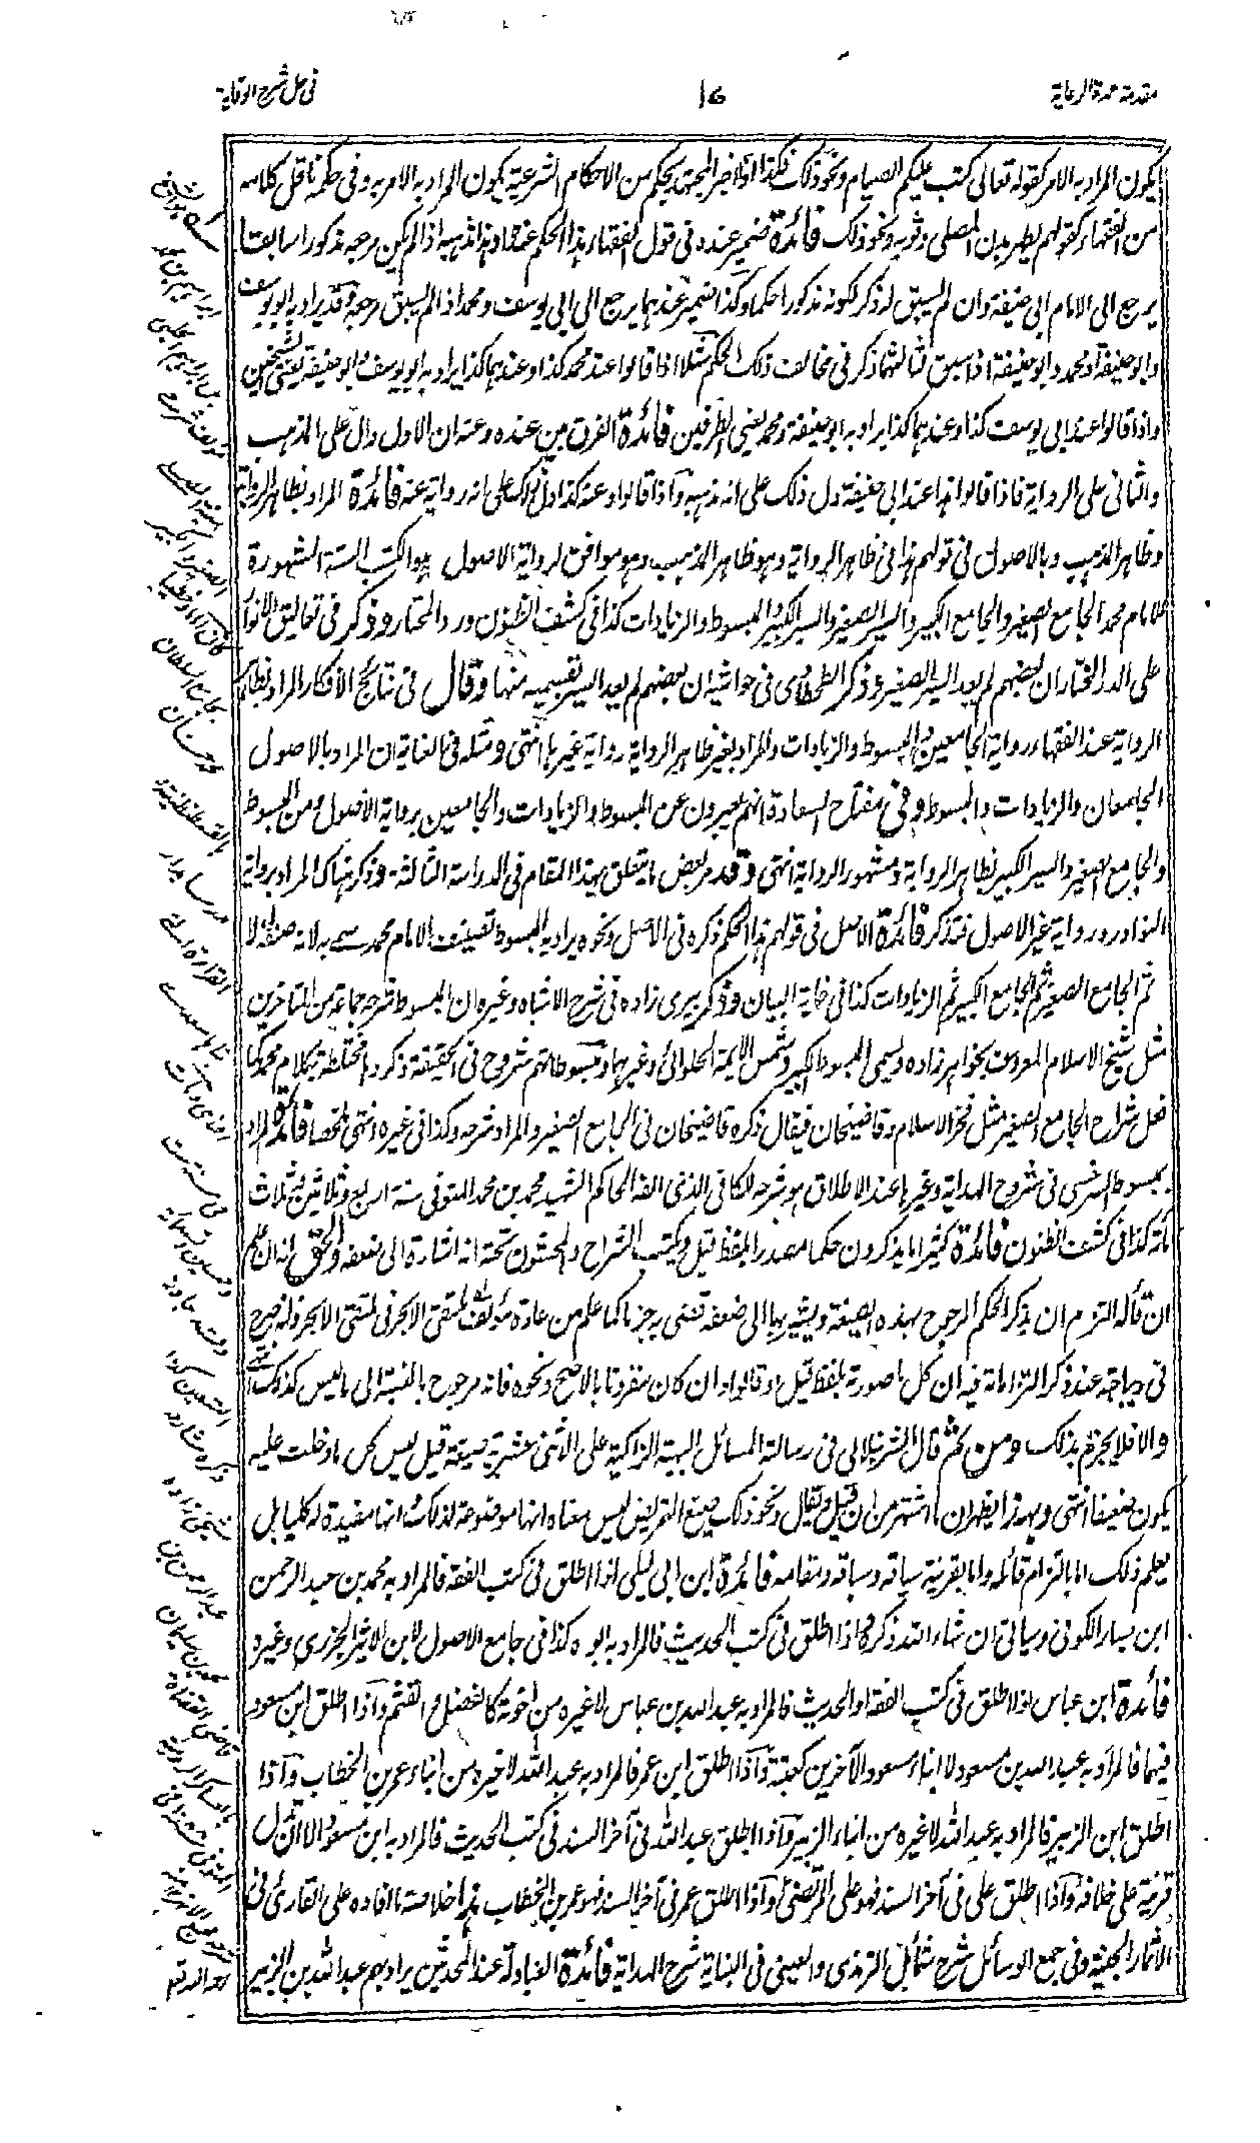 مقدمة عمدة الرعاية
١٧
في حل شرح الوقاية
يكون المراد به الامر كقوله تعالى كتب عليكم الصيام ونحو ذلك فكذا الاخبار المجتهد بحكم من الاحكام الشرعية يكون المراد به الامر به وفى حكمه ناقل كلامه
من الفقهاء كقولهم يطهر بدن المصلى وثوبه ونحو ذلك فائدة ضمير عنده فى قول الفقهاء هذا الحكم عنده وهذا مذهبه اذا لم يكن مرجعه مذكورا سابقا
يرجع الى الامام ابى حنيفة وان لم يسبق له ذكر لكونه مذكورا حكما وكذا ضمير عندهما يرجع الى ابى يوسف ومحمد اذا لم يسبق مرجعه وقد يراد به ابو يوسف
وابو حنيفة او محمد وابو حنيفة اذا سبق لثالثهما ذكر فى مخالف ذلك الحكم مثلا اذا قالوا عند محمد كذا وعندهما كذا يراد به ابو يوسف وابو حنيفة يعنى الشيخين
واذا قالوا عند ابى يوسف كذا وعندهما كذا يراد به ابو حنيفة ومحمد يعنى الطرفين فائدة الفرق بين عنده وعنه ان الاول دال على المذهب
والثانى على الرواية فاذا قالوا هذا عند ابى حنيفة دل ذلك على انه مذهبه واذا قالوا وعنه كذا دل ذلك على انه رواية عنه فائدة المراد بظاهر الرواية
وظاهر المذهب وبالاصول فى قولهم هذا فى ظاهر الرواية وهو ظاهر المذهب وهو موافق لرواية الاصول هو الكتب الستة المشهورة
للامام محمد الجامع الصغير والجامع الكبير والسير الصغير والسير الكبير والمبسوط والزيادات كذا فى كشف الظنون ورد المحتار وذكر فى تعاليق الانوار
على الدر المختار ان بعضهم لم يعد السير الصغير وذكر الطحطاوى فى حواشيه ان بعضهم لم يعد السير بقسميه منها وقال فى نتائج الافكار المراد بظاهر
الرواية عند الفقهاء رواية الجامعين والمبسوط والزيادات والمراد بغير ظاهر الرواية رواية غيرها انتهى ومثله فى العناية ان المراد بالاصول
الجامعان والزيادات والمبسوط وفى مفتاح السعادة انهم يعبرون عن المبسوط والزيادات والجامعين برواية الاصول وعن المبسوط
والجامع الصغير والسير الكبير بظاهر الرواية ومشهور الرواية انتهى وقد مر بعض ما يتعلق بهذا المقام فى الدراسة الثالثة وذكر هناك المراد برواية
النوادر ورواية غير الاصول فتذكر فائدة الاصل فى قولهم هذا الحكم ذكره فى الاصل ونحوه يراد به المبسوط تصنيف الامام محمد سمى به لانه صنفه اولا
ثم الجامع الصغير ثم الجامع الكبير ثم الزيادات كذا فى غاية البيان وذكر بيرى زاده فى شرح الاشباه وغيره ان المبسوط شرحه جماعة من المتاخرين
مثل شيخ الاسلام المعروف بخواهر زاده ويسمى المبسوط الكبير وشمس الايمة الحلوائى وغيرهما ومبسوطاتهم شروح فى الحقيقة ذكروها مختلطة بكلام محمد كما
فعل شراح الجامع الصغير مثل فخر الاسلام وقاضيخان فيقال ذكره قاضيخان فى الجامع الصغير والمراد شرحه وكذا فى غيره انتهى ملخصا فائدة المراد
بمبسوط السرخسى فى شروح الهداية وغيرها عند الاطلاق هو شرحه للكافى الذى الفه الحاكم الشهيد محمد بن محمد المتوفى سنة اربع وثلاثين وثلاث
مائة كذا فى كشف الظنون فائدة كثيرا ما يذكرون حكما مصدرا بلفظ قيل ويكتب الشراح والمحشون تحته انه اشارة الى ضعفه والحق انه ان علم
ان قائله التزم ان يذكر الحكم المرجوح بهذه الصيغة ويشير بها الى ضعفه تقضى به جزما كما علم من عادة مؤلف ملتقى الابحر فى ملتقى الابحر فانه صرح
فى ديباجته عند ذكر التزاماته فيه ان كل ما صورته بلفظ قيل او قالوا وان كان مقرونا بالاصح ونحوه فانه مرجوح بالنسبة الى ما ليس كذلك انتهى
والا فلا يجزم بذلك ومن ثم قال الشرنبلالى فى رسالة المسائل البهية الزاكية على الاثنى عشرية صيغة قيل ليس كل ما دخلت عليه
يكون ضعيفا انتهى وبهذا يظهر ان ما اشتهر من ان قيل ويقال ونحو ذلك صيغ التمريض ليس معناه انها موضوعة لذلك وانها مفيدة له كليا بل
يعلم ذلك اما بالتزام قائله واما بقرينة سياقه وسباقه ومقامه فائدة ابن ابى ليلى اذا اطلق فى كتب الفقه فالمراد به محمد بن عبد الرحمن
ابن يسار الكوفى وسياتى ان شاء الله ذكره واذا اطلق فى كتب الحديث فالمراد به ابوه كذا فى جامع الاصول لابن الاثير الجزرى وغيره
فائدة ابن عباس اذا اطلق فى كتب الفقه او الحديث فالمراد به عبد الله بن عباس لا غيره من اخوته كالفضل والقثم واذا اطلق ابن مسعود
فيهما فالمراد به عبد الله بن مسعود لا ابناء مسعود الآخرين كعتبة واذا اطلق ابن عمر فالمراد به عبد الله لا غيره من ابناء عمر بن الخطاب واذا
اطلق ابن الزبير فالمراد به عبد الله لا غيره من ابناء الزبير واذا اطلق عبد الله فى آخر السند فى كتب الحديث فالمراد به ابن مسعود الا ان دل
قرينة على خلافه واذا اطلق على فى آخر السند فهو على المرتضى واذا اطلق عمر فى آخر السند فهو عمر بن الخطاب هذا خلاصة ما افاده على القارئ فى
الاثمار الجنية وفى جمع الوسائل شرح شمائل الترمذى والعينى فى البناية شرح الهداية فائدة العبادلة عند المحدثين يراد بهم عبد الله بن الزبير
ابراهيم بن محمد
بن ابراهيم الحلبى